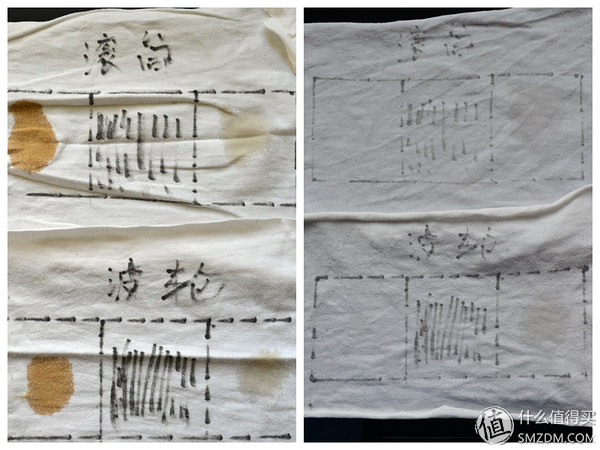 滚筒
波轮
滚筒
波轮
值 什么值得买
SMZDM.COM